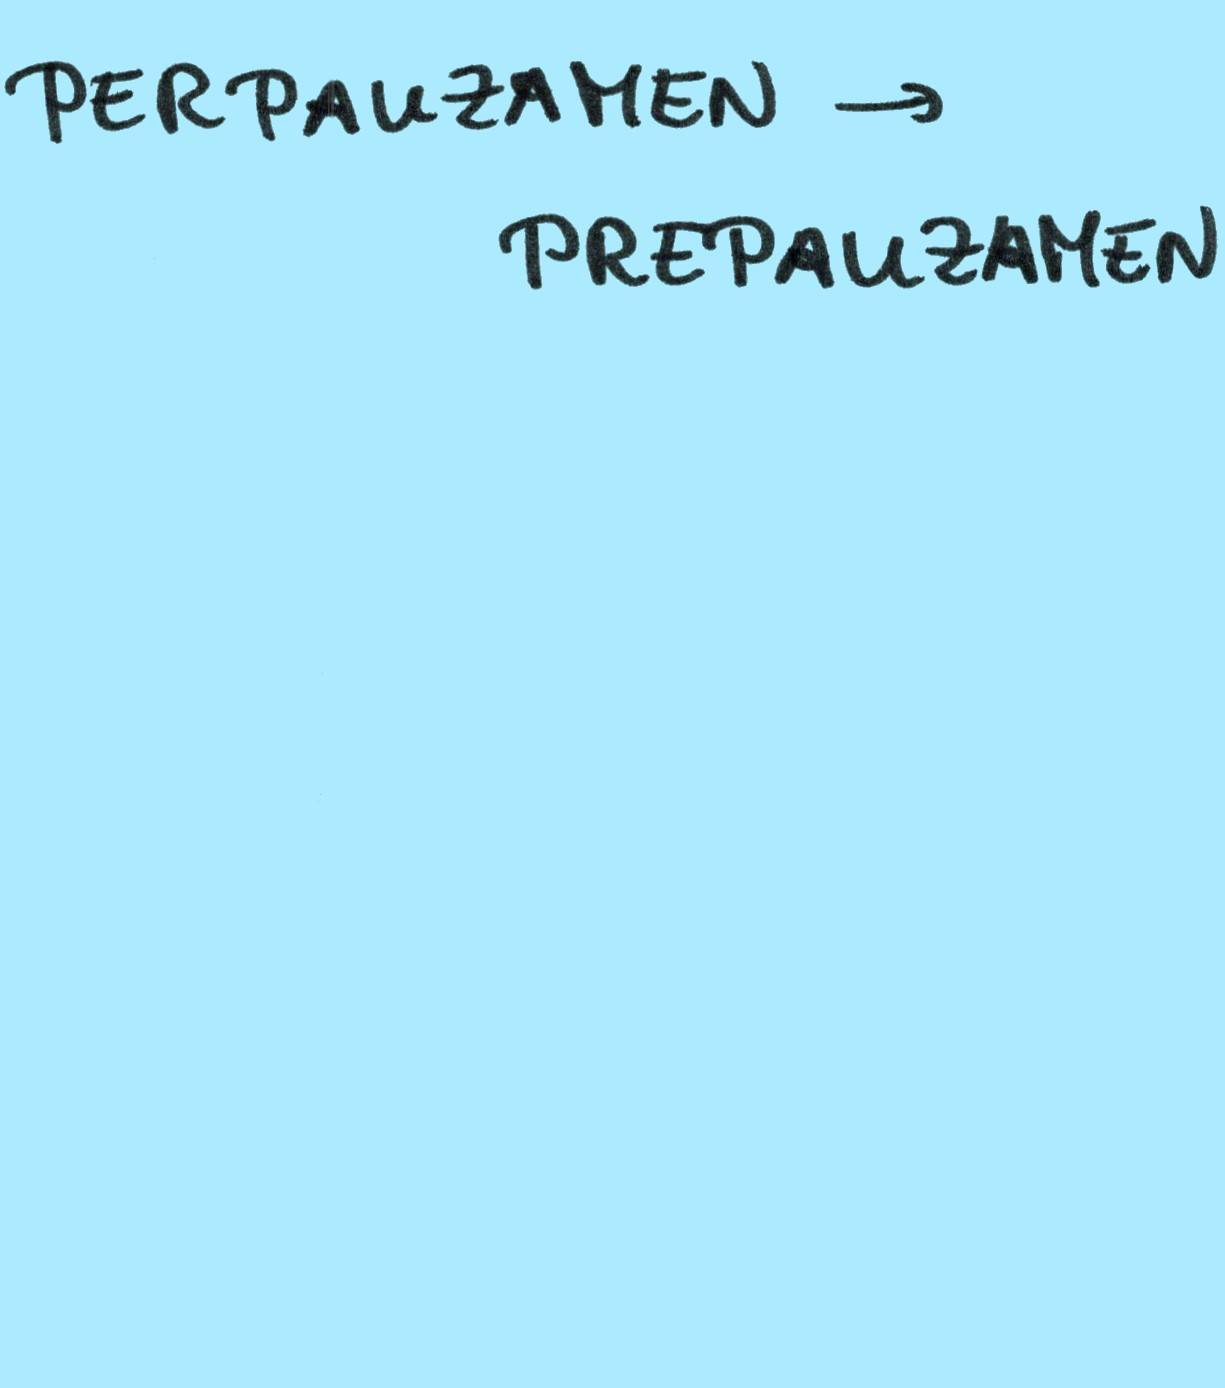 PERPAUZAMEN →
PREPAUZAMEN